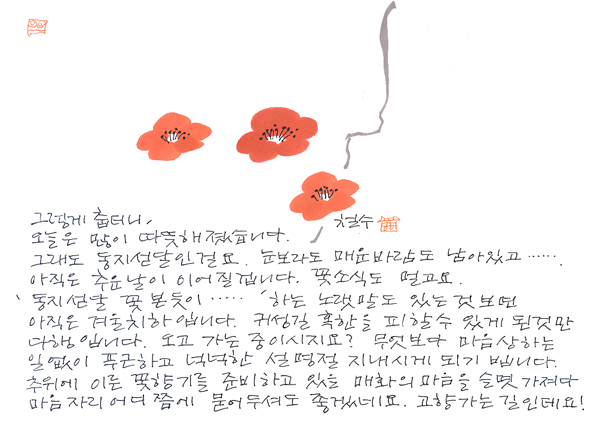 그렇게 춥더니,
철수
오늘은 많이 따뜻해졌습니다.
그래도 동지섣달인걸요. 눈보라도 매운바람도 남아있고 …….
아직은 추운날이 이어질겝니다. 꽃소식도 멀고요.
'동지섣달 꽃 본듯이 ……' 하는 노랫말도 있는것 보면
아직은 겨울치하 입니다. 귀성길 혹한을 피할수 있게 된것만
다해입니다. 오고 가는 중이시지요? 무엇보다 마음상하는
일없이 푹근하고 넉넉한 설명절 지내시게 되기 빕니다.
추위에 이른 꽃향기를 준비하고 있는 매화의 마음을 슬몃 가져다
마음자리 어디쯤에 묻어두셔도 좋겠네요. 고향가는 길인데요!